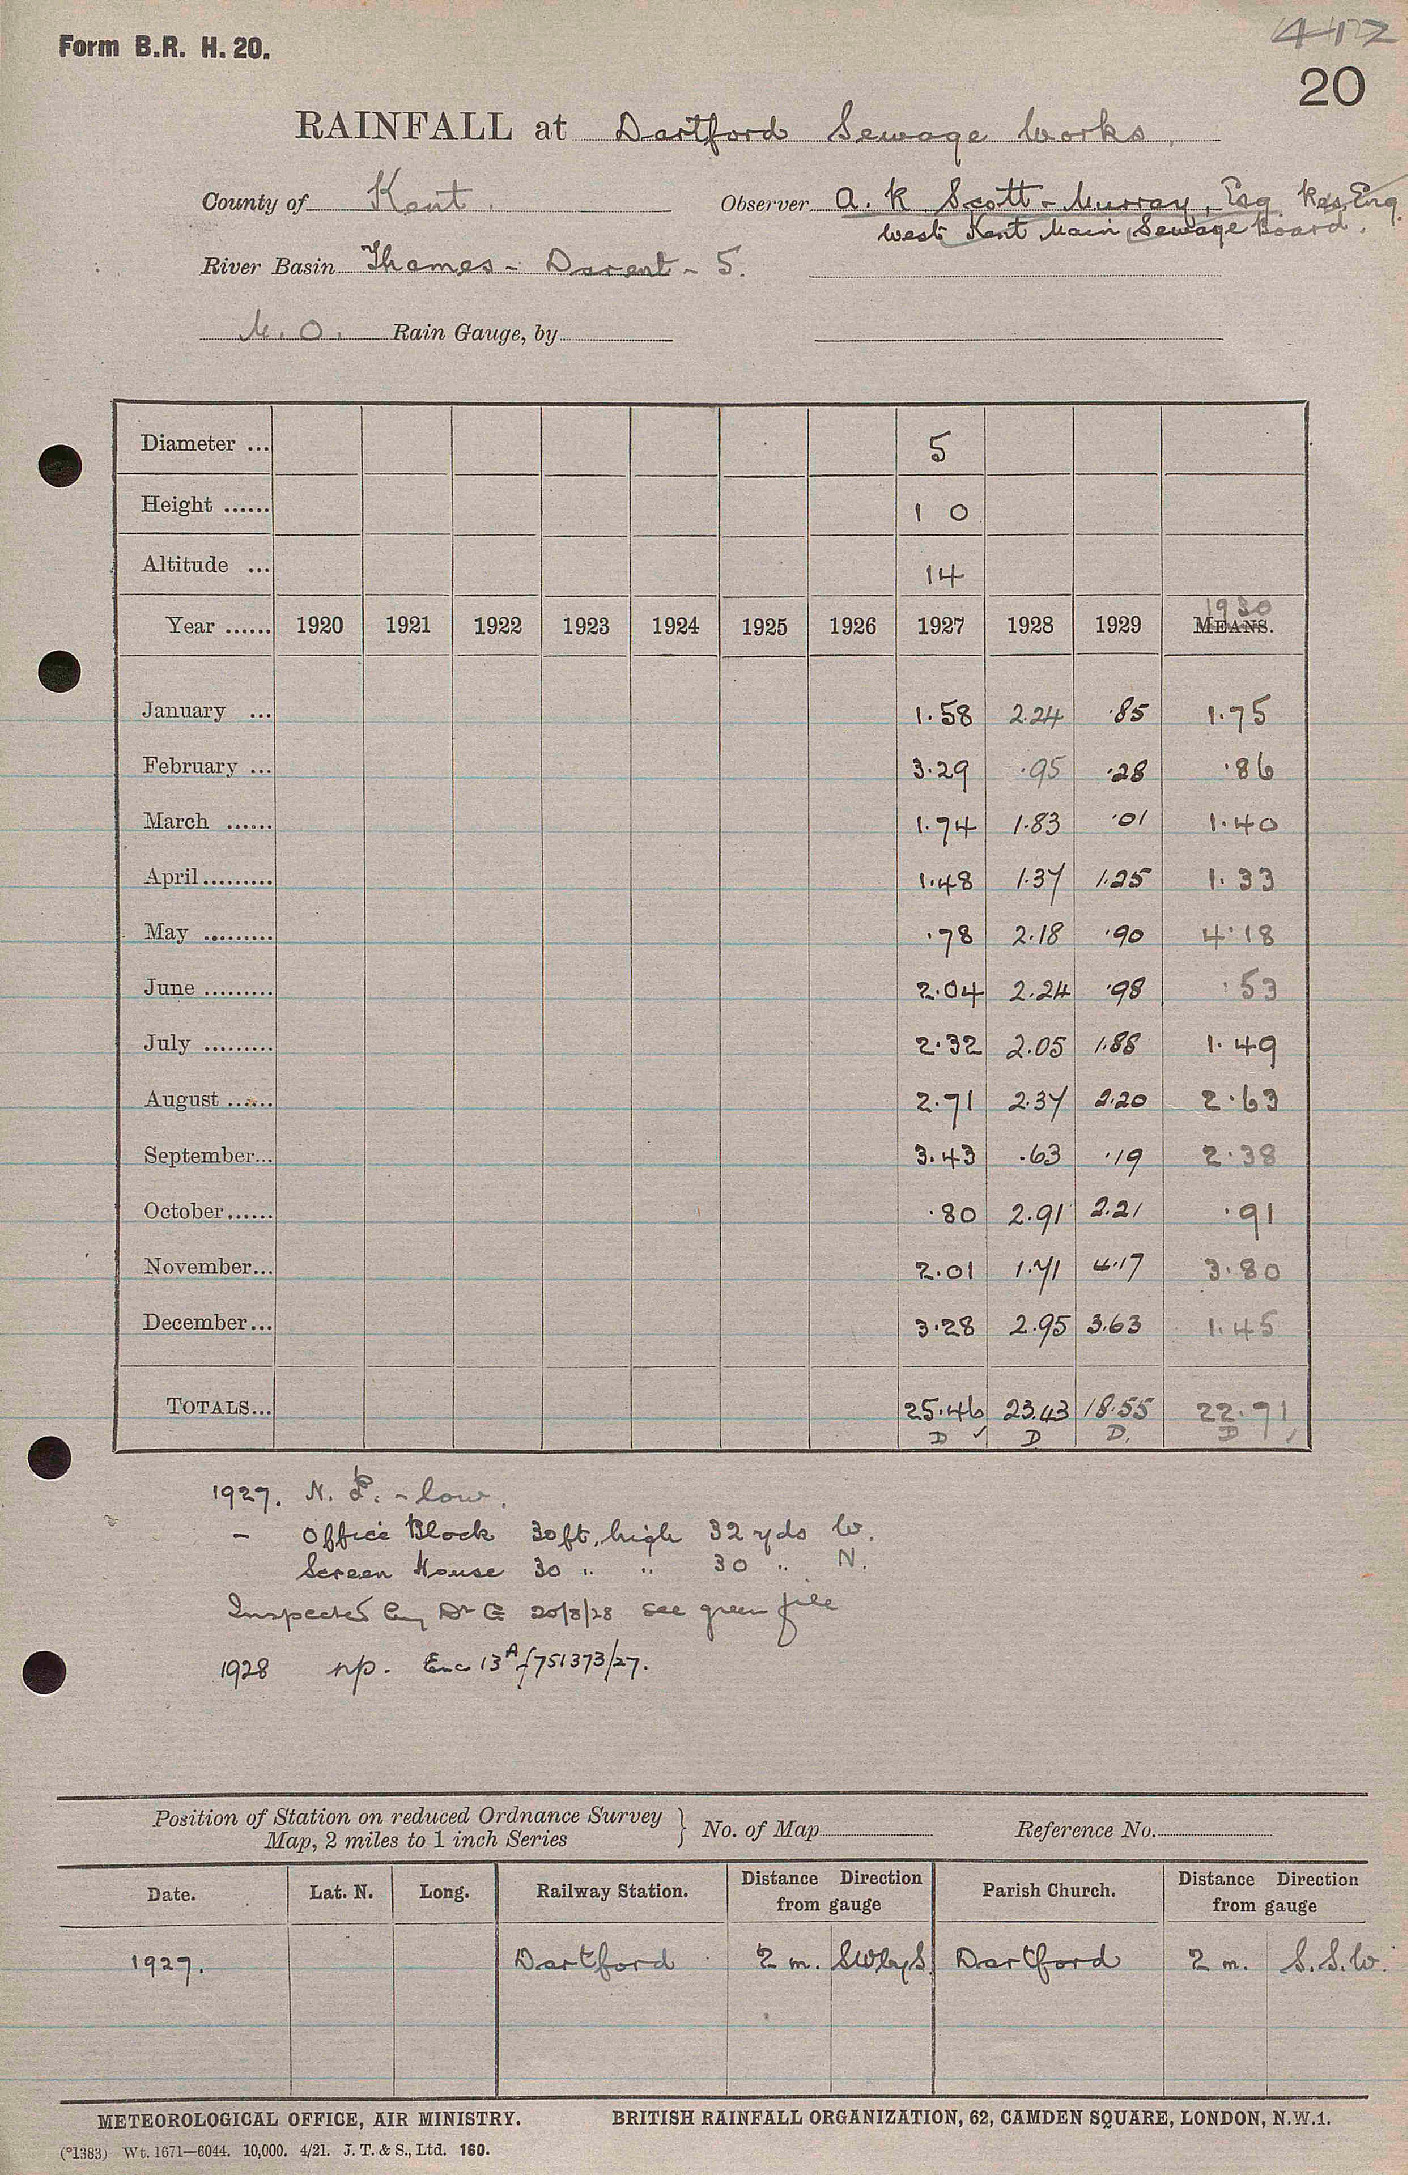 Form B.R. H. 20.
417
20
RAINFALL at Dartford Sewage Works
County of Kent. Observer A. K Scott-Murray, Esq. Res. Eng.
West Kent Main Sewage Board.
River Basin Thames - Darent - 5.
M.O. Rain Gauge, by
Diameter ... 5
Height ...... 1 0
Altitude ... 14
Year ...... 1920 1921 1922 1923 1924 1925 1926 1927 1928 1929 MEANS. 1930
January ... 1.58 2.24 .85 1.75
February ... 3.29 .95 .28 .86
March ...... 1.74 1.83 .01 1.40
April ......... 1.48 1.37 1.25 1.33
May ......... .78 2.18 .90 4.18
June ......... 2.04 2.24 .98 .53
July ......... 2.32 2.05 1.88 1.49
August ...... 2.71 2.37 2.20 2.63
September... 3.43 .63 .19 2.38
October...... .80 2.91 2.21 .91
November... 2.01 1.71 4.17 3.80
December... 3.28 2.95 3.63 1.45
TOTALS... 25.46 23.43 18.55 22.71
D ✓ D D. D ✓
1927. N. P. - low.
- Office Block 30ft. high 32 yds W.
Screen House 30 " " 30 " N.
Inspected by Dr G 20/8/28 see green file
1928 np. Enc 13A f 751373/27.
Position of Station on reduced Ordnance Survey
Map, 2 miles to 1 inch Series } No. of Map Reference No.
Date. Lat. N. Long. Railway Station. Distance Direction from gauge Parish Church. Distance Direction from gauge
1927. Dartford 2 m. SWbyS. Dartford 2 m. S.S.W.
METEOROLOGICAL OFFICE, AIR MINISTRY. BRITISH RAINFALL ORGANIZATION, 62, CAMDEN SQUARE, LONDON, N.W.1.
(*1383) Wt. 1671—6044. 10,000. 4/21. J. T. & S., Ltd. 160.